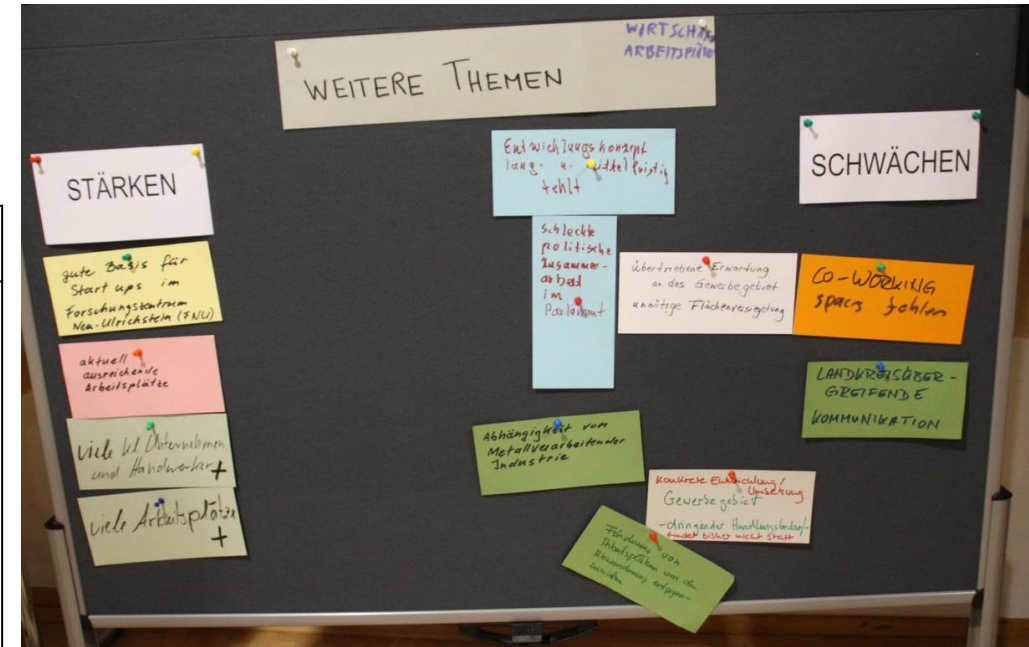 WEITERE THEMEN
WIRTSCHA
ARBEITSPLÄTZE
STÄRKEN
gute Basis für
Start ups im
Forschungszentrum
Neu-Ulrichstein (FNU)
aktuell
ausreichende
Arbeitsplätze
viele kl Unternehmen
und Handwerker +
viele Arbeitsplätze
+
Entwicklungskonzept
lang- u. mittelfristig
fehlt
schlechte
politische
Zusammen-
arbeit
im
Parlament
Abhängigkeit von
Metallverarbeitender
Industrie
übertriebene Erwartung
an das Gewerbegebiet
unnötige Flächenversiegelung
Konkrete Entwicklung/
Umsetzung
Gewerbegebiet
-dringender Handlungsbedarf-
findet bisher nicht statt
Förderung von
Arbeitsplätzen um der
Abwanderung entgegen-
SCHWÄCHEN
CO-WORKING
spaces fehlen
LANDKREISÜBER-
GREIFENDE
KOMMUNIKATION